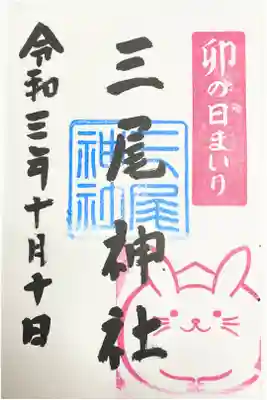 卯の日まいり
三尾神社
三尾
神社
令和三年十月十日